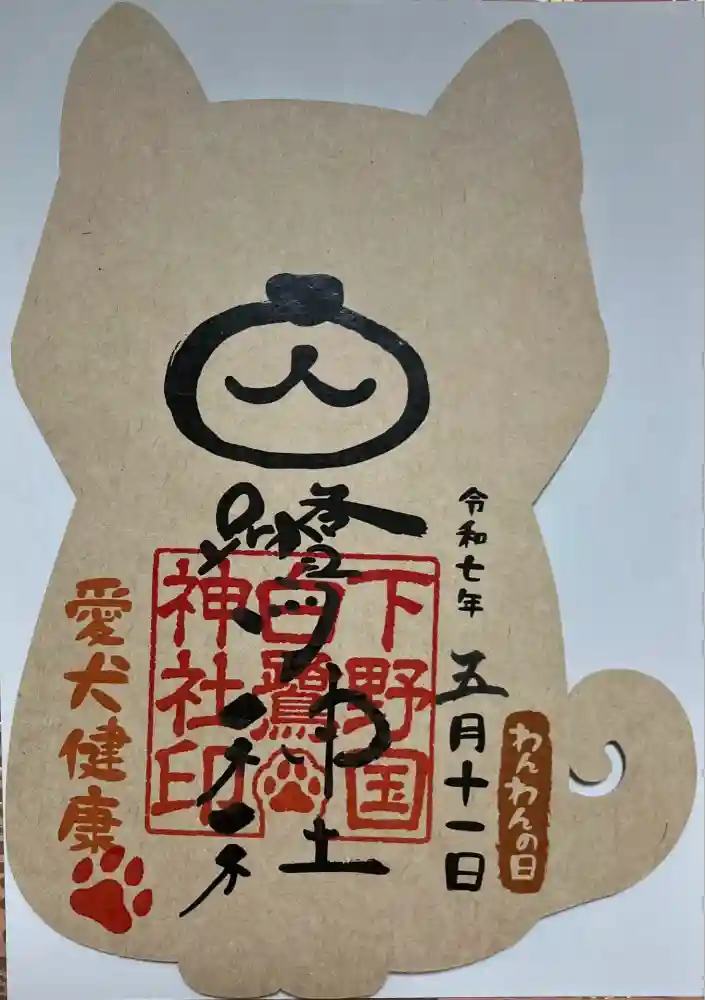 令和七年 五月十一日
わんわんの日
下野国
白鷺
神社印
愛犬健康